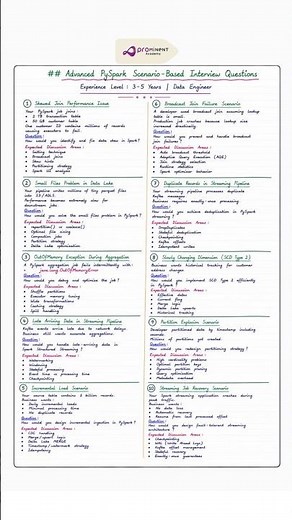 PROMINENT
Academy
## Advanced PySpark Scenario-Based Interview Questions
Experience Level : 3-5 Years | Data Engineer
1 Skewed Join Performance Issue
Your PySpark job joins :
• 2 TB transaction table
• 50 GB customer table
One customer ID contains millions of records
causing executors to fail.
Question :
How would you identify and fix data skew in Spark?
Expected Discussion Areas :
• Salting technique
• Broadcast join
• Skew hints
• Partitioning strategy
• Spark UI analysis
2 Small Files Problem in Data Lake
Your pipeline writes millions of tiny parquet files
into S3/ADLS.
Performance becomes extremely slow for
downstream jobs.
Question :
How would you solve the small files problem in PySpark?
Expected Discussion Areas :
• repartition() vs coalesce()
• Optimal file sizing
• Compaction jobs
• Partition strategy
• Delta Lake optimization
3 OutOfMemory Exception During Aggregation
A PySpark aggregation job fails intermittently with :
java.lang.OutOfMemoryError
Question :
How would you debug and optimize the job?
Expected Discussion Areas :
• Shuffle partitions
• Executor memory tuning
• Wide transformations
• Caching strategy
• Spill handling
4 Late Arriving Data in Streaming Pipeline
Kafka events arrive late due to network delays.
Business still wants accurate aggregations.
Question :
How would you handle late-arriving data in
Spark Structured Streaming?
Expected Discussion Areas :
• Watermarking
• Windowing
• Stateful processing
• Event time vs processing time
• Checkpointing
5 Incremental Load Scenario
Your source table contains 5 billion records.
Business wants :
• Daily incremental loads
• Minimal processing time
• No duplicate records
Question :
How would you design incremental ingestion in PySpark?
Expected Discussion Areas :
• CDC handling
• Merge/upsert logic
• Delta Lake MERGE
• Timestamp/watermark strategy
• Idempotency
6 Broadcast Join Failure Scenario
A developer used broadcast join assuming lookup
table is small.
Production job crashes because lookup size
increased drastically.
Question :
How would you prevent and handle broadcast
join failures?
Expected Discussion Areas :
• Auto broadcast threshold
• Adaptive Query Execution (AQE)
• Join strategy selection
• Runtime statistics
• Spark optimizer behavior
7 Duplicate Records in Streaming Pipeline
Your streaming pipeline processes duplicate
Kafka messages.
Business requires exactly-once processing.
Question :
How would you achieve deduplication in PySpark
streaming?
Expected Discussion Areas :
• dropDuplicates
• Stateful deduplication
• Checkpointing
• Kafka offsets
• Idempotent writes
8 Slowly Changing Dimension (SCD Type 2)
Business wants historical tracking for customer
address changes.
Question :
How would you implement SCD Type 2 efficiently
in PySpark?
Expected Discussion Areas :
• Effective dates
• Current flag
• Merge logic
• Delta Lake upserts
• Historical tracking
9 Partition Explosion Scenario
Developer partitioned data by timestamp including
seconds.
Millions of partitions got created.
Question :
How would you redesign partitioning strategy?
Expected Discussion Areas :
• High cardinality problems
• Optimal partition keys
• Dynamic partition pruning
• Query optimization
• Metadata overhead
10 Streaming Job Recovery Scenario
Your Spark streaming application crashes during
peak traffic.
Business wants :
• No data loss
• Automatic recovery
• Resume from last processed offset
Question :
How would you design fault-tolerant streaming
architecture?
Expected Discussion Areas :
• Checkpointing
• WAL (Write Ahead Logs)
• Kafka offset management
• Stateful recovery
• Exactly-once guarantees